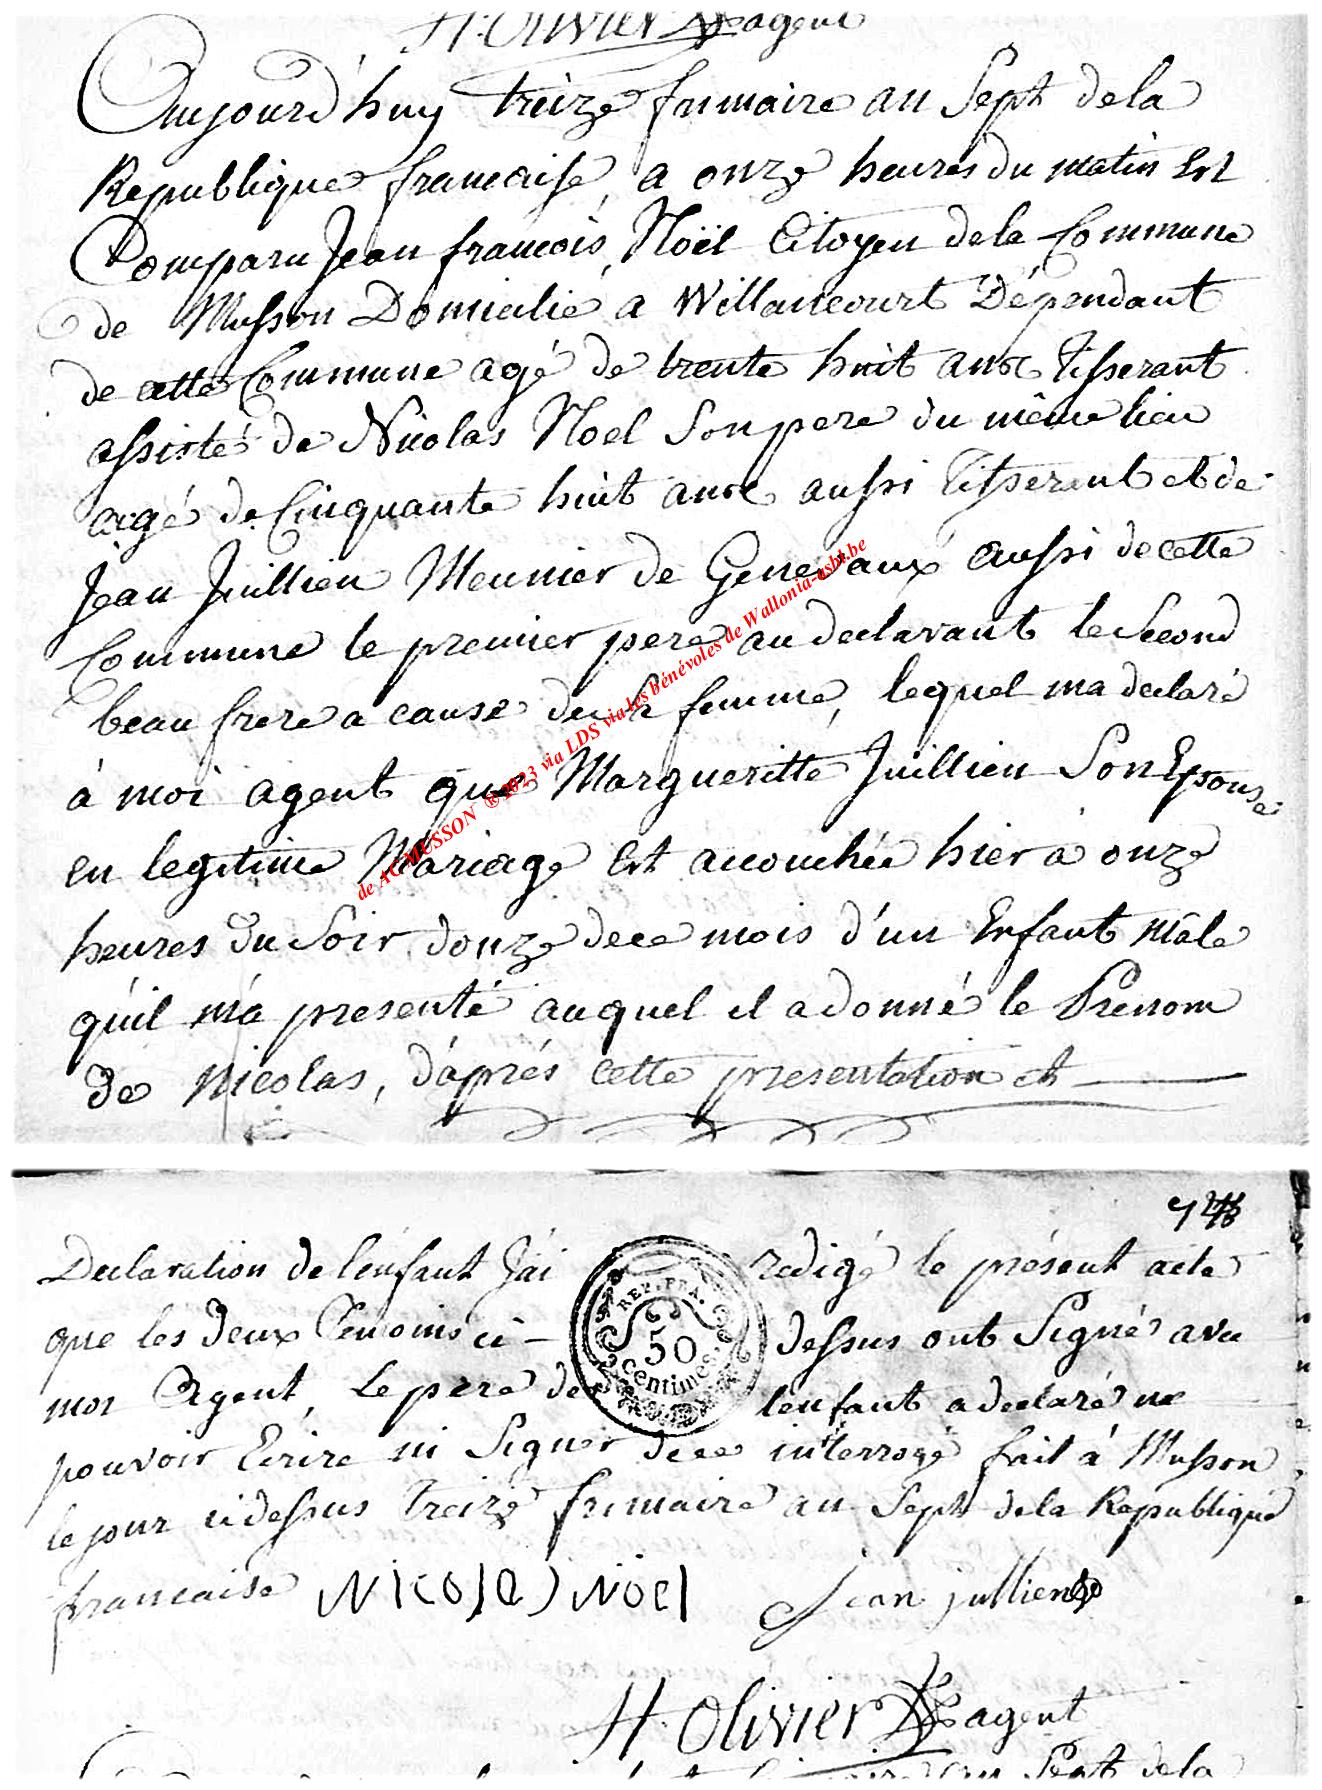 H. Olivier agent
Aujourd'huy treize frimaire an Sept dela
Republique francaise, a onze heures du matin Est
Comparu Jean francois, Noël Citoyen dela Commune
de Musson Domicilié a Willancourt Dépendant
de cette Commune agé de trente huit ans Tisserant
assisté de Nicolas Noel Son pere du même lieu
agé de Cinquante huit ans aussi Tisserant et de
Jean Juillien Meunier de Genevaux aussi de cette
Commune le premier pere au declarant le Second
beau frere a cause de sa femme, lequel ma declaré
à moi agent que Margueritte Juillien Son Epouse
en legitime Mariage Est accouchée hier à onze
heures du Soir douze de ce mois d'un Enfant mâle
qu'il m'a presenté auquel il a donné le Prenom
de Nicolas, d'aprés cette presentation et
de AC MUSSON ®2023 via LDS via les bénévoles de Wallonia-asbl.be
Declaration de l'enfant J'ai redigé le présent acte
que les deux Temoins ci- dessus ont Signé avec
moi Agent, Le pere de l'enfant a declaré ne
pouvoir Ecrire ni Signer de ce interrogé fait à Musson
le jour ci dessus Treize frimaire an Sept de la Republique
francaise Nicolas Noël Jean jullien
REP. FRA.
50
Centimes.
H. Olivier agent
an Sept de la